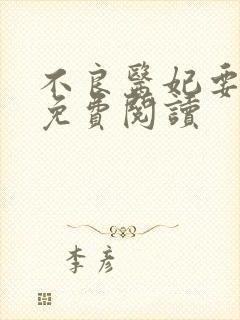 不良醫妃要
免費閱讀
李彥